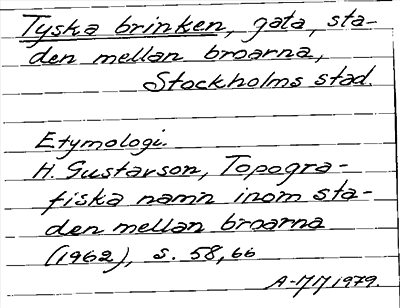 Tyska brinken, gata, sta-
den mellan broarna,
Stockholms stad.
Etymologi.
H. Gustavson, Topogra-
fiska namn inom sta-
den mellan broarna
(1962), s. 58, 66
1979.